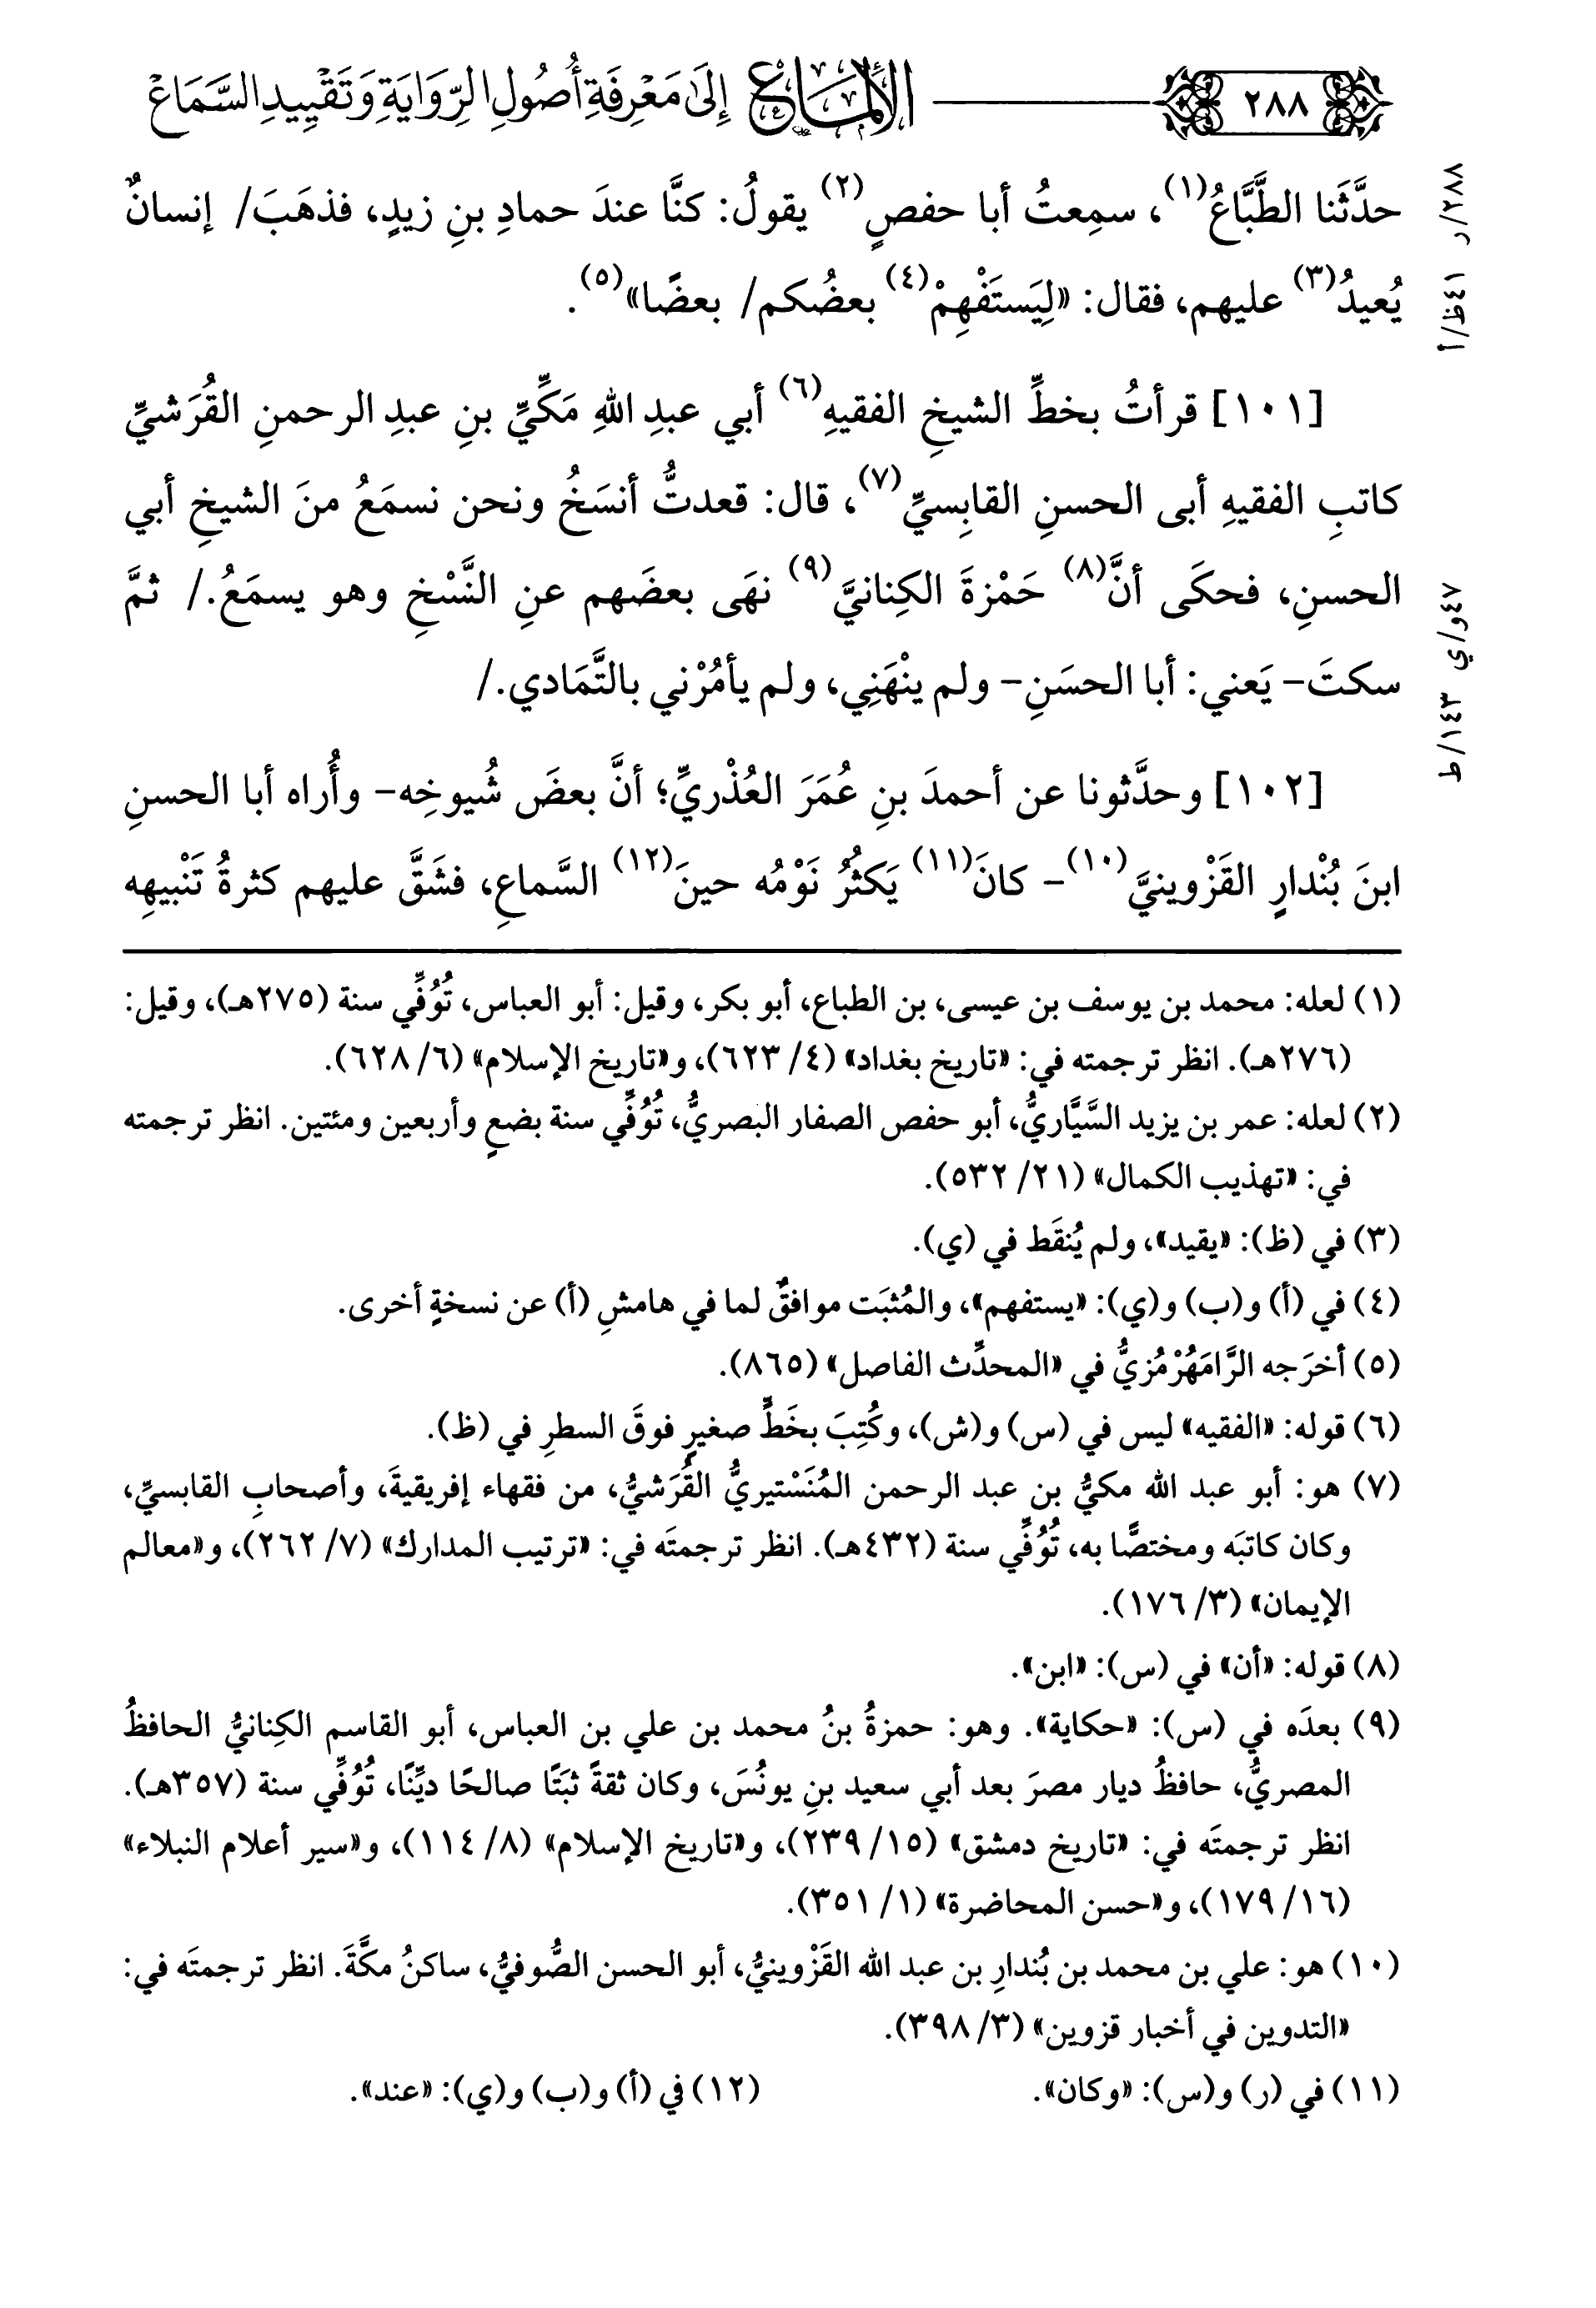 ٢٨٨ الإلماع إلى معرفة أصول الرواية وتقييد السماع
حدَّثَنا الطَّبَّاعُ(١)، سمِعتُ أبا حفصٍ(٢) يقولُ: كنَّا عندَ حمادِ بنِ زيدٍ، فذهَبَ/ إنسانٌ
٢٨٨/ر
يُعيدُ(٣) عليهم، فقال: «لِيَستَفْهِمْ(٤) بعضُكم/ بعضًا»(٥).
٤١ظ/أ
[١٠١] قرأتُ بخطِّ الشيخِ الفقيهِ(٦) أبي عبدِ اللهِ مَكِّيِّ بنِ عبدِ الرحمنِ القُرَشيِّ
كاتبِ الفقيهِ أبى الحسنِ القابِسيِّ(٧)، قال: قعدتُّ أنسَخُ ونحن نسمَعُ منَ الشيخِ أبي
الحسنِ، فحكَى أنَّ(٨) حَمْزةَ الكِنانيَّ(٩) نهَى بعضَهم عنِ النَّسْخِ وهو يسمَعُ./ ثمَّ
٤٧و/ي
سكتَ- يَعني: أبا الحسَنِ- ولم ينْهَنِي، ولم يأمُرْني بالتَّمَادي./
١٤٣/ط
[١٠٢] وحدَّثونا عن أحمدَ بنِ عُمَرَ العُذْريِّ؛ أنَّ بعضَ شُيوخِه- وأُراه أبا الحسنِ
ابنَ بُنْدارٍ القَزْوينيَّ(١٠)- كانَ(١١) يَكثُرُ نَوْمُه حينَ(١٢) السَّماعِ، فشَقَّ عليهم كثرةُ تَنْبيهِه
(١) لعله: محمد بن يوسف بن عيسى، بن الطباع، أبو بكر، وقيل: أبو العباس، تُوُفِّي سنة (٢٧٥هـ)، وقيل:
(٢٧٦هـ). انظر ترجمته في: «تاريخ بغداد» (٤/ ٦٢٣)، و«تاريخ الإسلام» (٦/ ٦٢٨).
(٢) لعله: عمر بن يزيد السَّيَّاريُّ، أبو حفص الصفار البصريُّ، تُوُفِّي سنة بضعٍ وأربعين ومئتين. انظر ترجمته
في: «تهذيب الكمال» (٢١/ ٥٣٢).
(٣) في (ظ): «يقيد»، ولم يُنقَط في (ي).
(٤) في (أ) و(ب) و(ي): «يستفهم»، والمُثبَت موافقٌ لما في هامشِ (أ) عن نسخةٍ أخرى.
(٥) أخرَجه الرَّامَهُرْمُزيُّ في «المحدِّث الفاصل» (٨٦٥).
(٦) قوله: «الفقيه» ليس في (س) و(ش)، وكُتِبَ بخَطٍّ صغيرٍ فوقَ السطرِ في (ظ).
(٧) هو: أبو عبد الله مكيُّ بن عبد الرحمن المُنَسْتيريُّ القُرَشيُّ، من فقهاء إفريقيةَ، وأصحابِ القابسيِّ،
وكان كاتبَه ومختصًّا به، تُوُفِّي سنة (٤٣٢هـ). انظر ترجمتَه في: «ترتيب المدارك» (٧/ ٢٦٢)، و«معالم
الإيمان» (٣/ ١٧٦).
(٨) قوله: «أن» في (س): «ابن».
(٩) بعدَه في (س): «حكاية». وهو: حمزةُ بنُ محمد بن علي بن العباس، أبو القاسم الكِنانيُّ الحافظُ
المصريُّ، حافظُ ديار مصرَ بعد أبي سعيد بنِ يونُسَ، وكان ثقةً ثبَتًا صالحًا ديِّنًا، تُوُفِّي سنة (٣٥٧هـ).
انظر ترجمتَه في: «تاريخ دمشق» (١٥/ ٢٣٩)، و«تاريخ الإسلام» (٨/ ١١٤)، و«سير أعلام النبلاء»
(١٦/ ١٧٩)، و«حسن المحاضرة» (١/ ٣٥١).
(١٠) هو: علي بن محمد بن بُندارِ بن عبد الله القَزْوينيُّ، أبو الحسن الصُّوفيُّ، ساكنُ مكَّةَ. انظر ترجمتَه في:
«التدوين في أخبار قزوين» (٣/ ٣٩٨).
(١١) في (ر) و(س): «وكان». (١٢) في (أ) و(ب) و(ي): «عند».